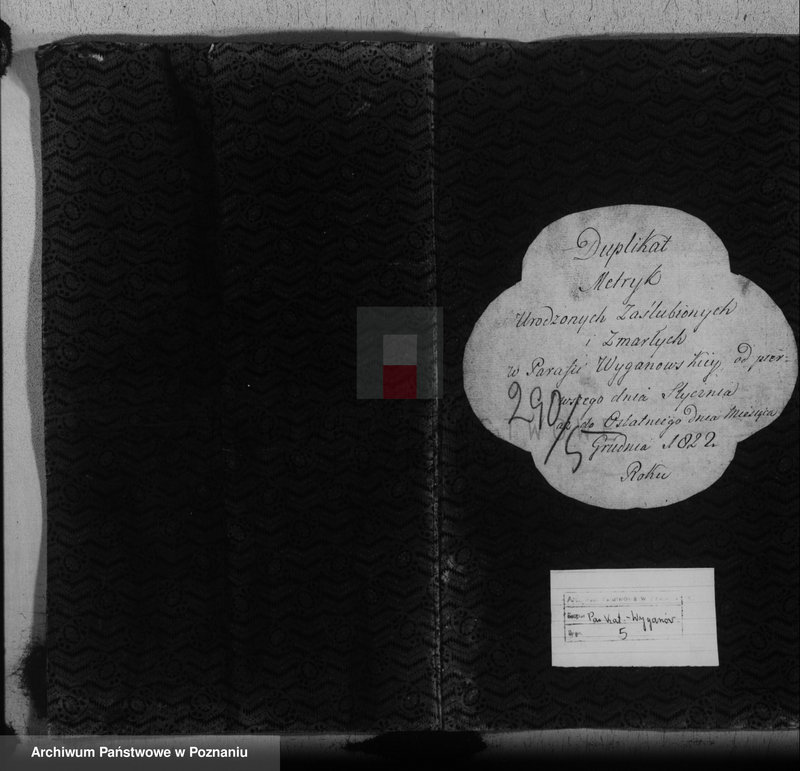 Duplikat
Metryk
Urodzonych Zaślubionych
i Zmarłych
w Parafii Wyganowskiey od pier-
wszego dnia Stycznia
aż do Ostatniego dnia Miesiąca
Grudnia 1822
Roku
290/5
Par. Kat. Wyganów
5
Archiwum Państwowe w Poznaniu